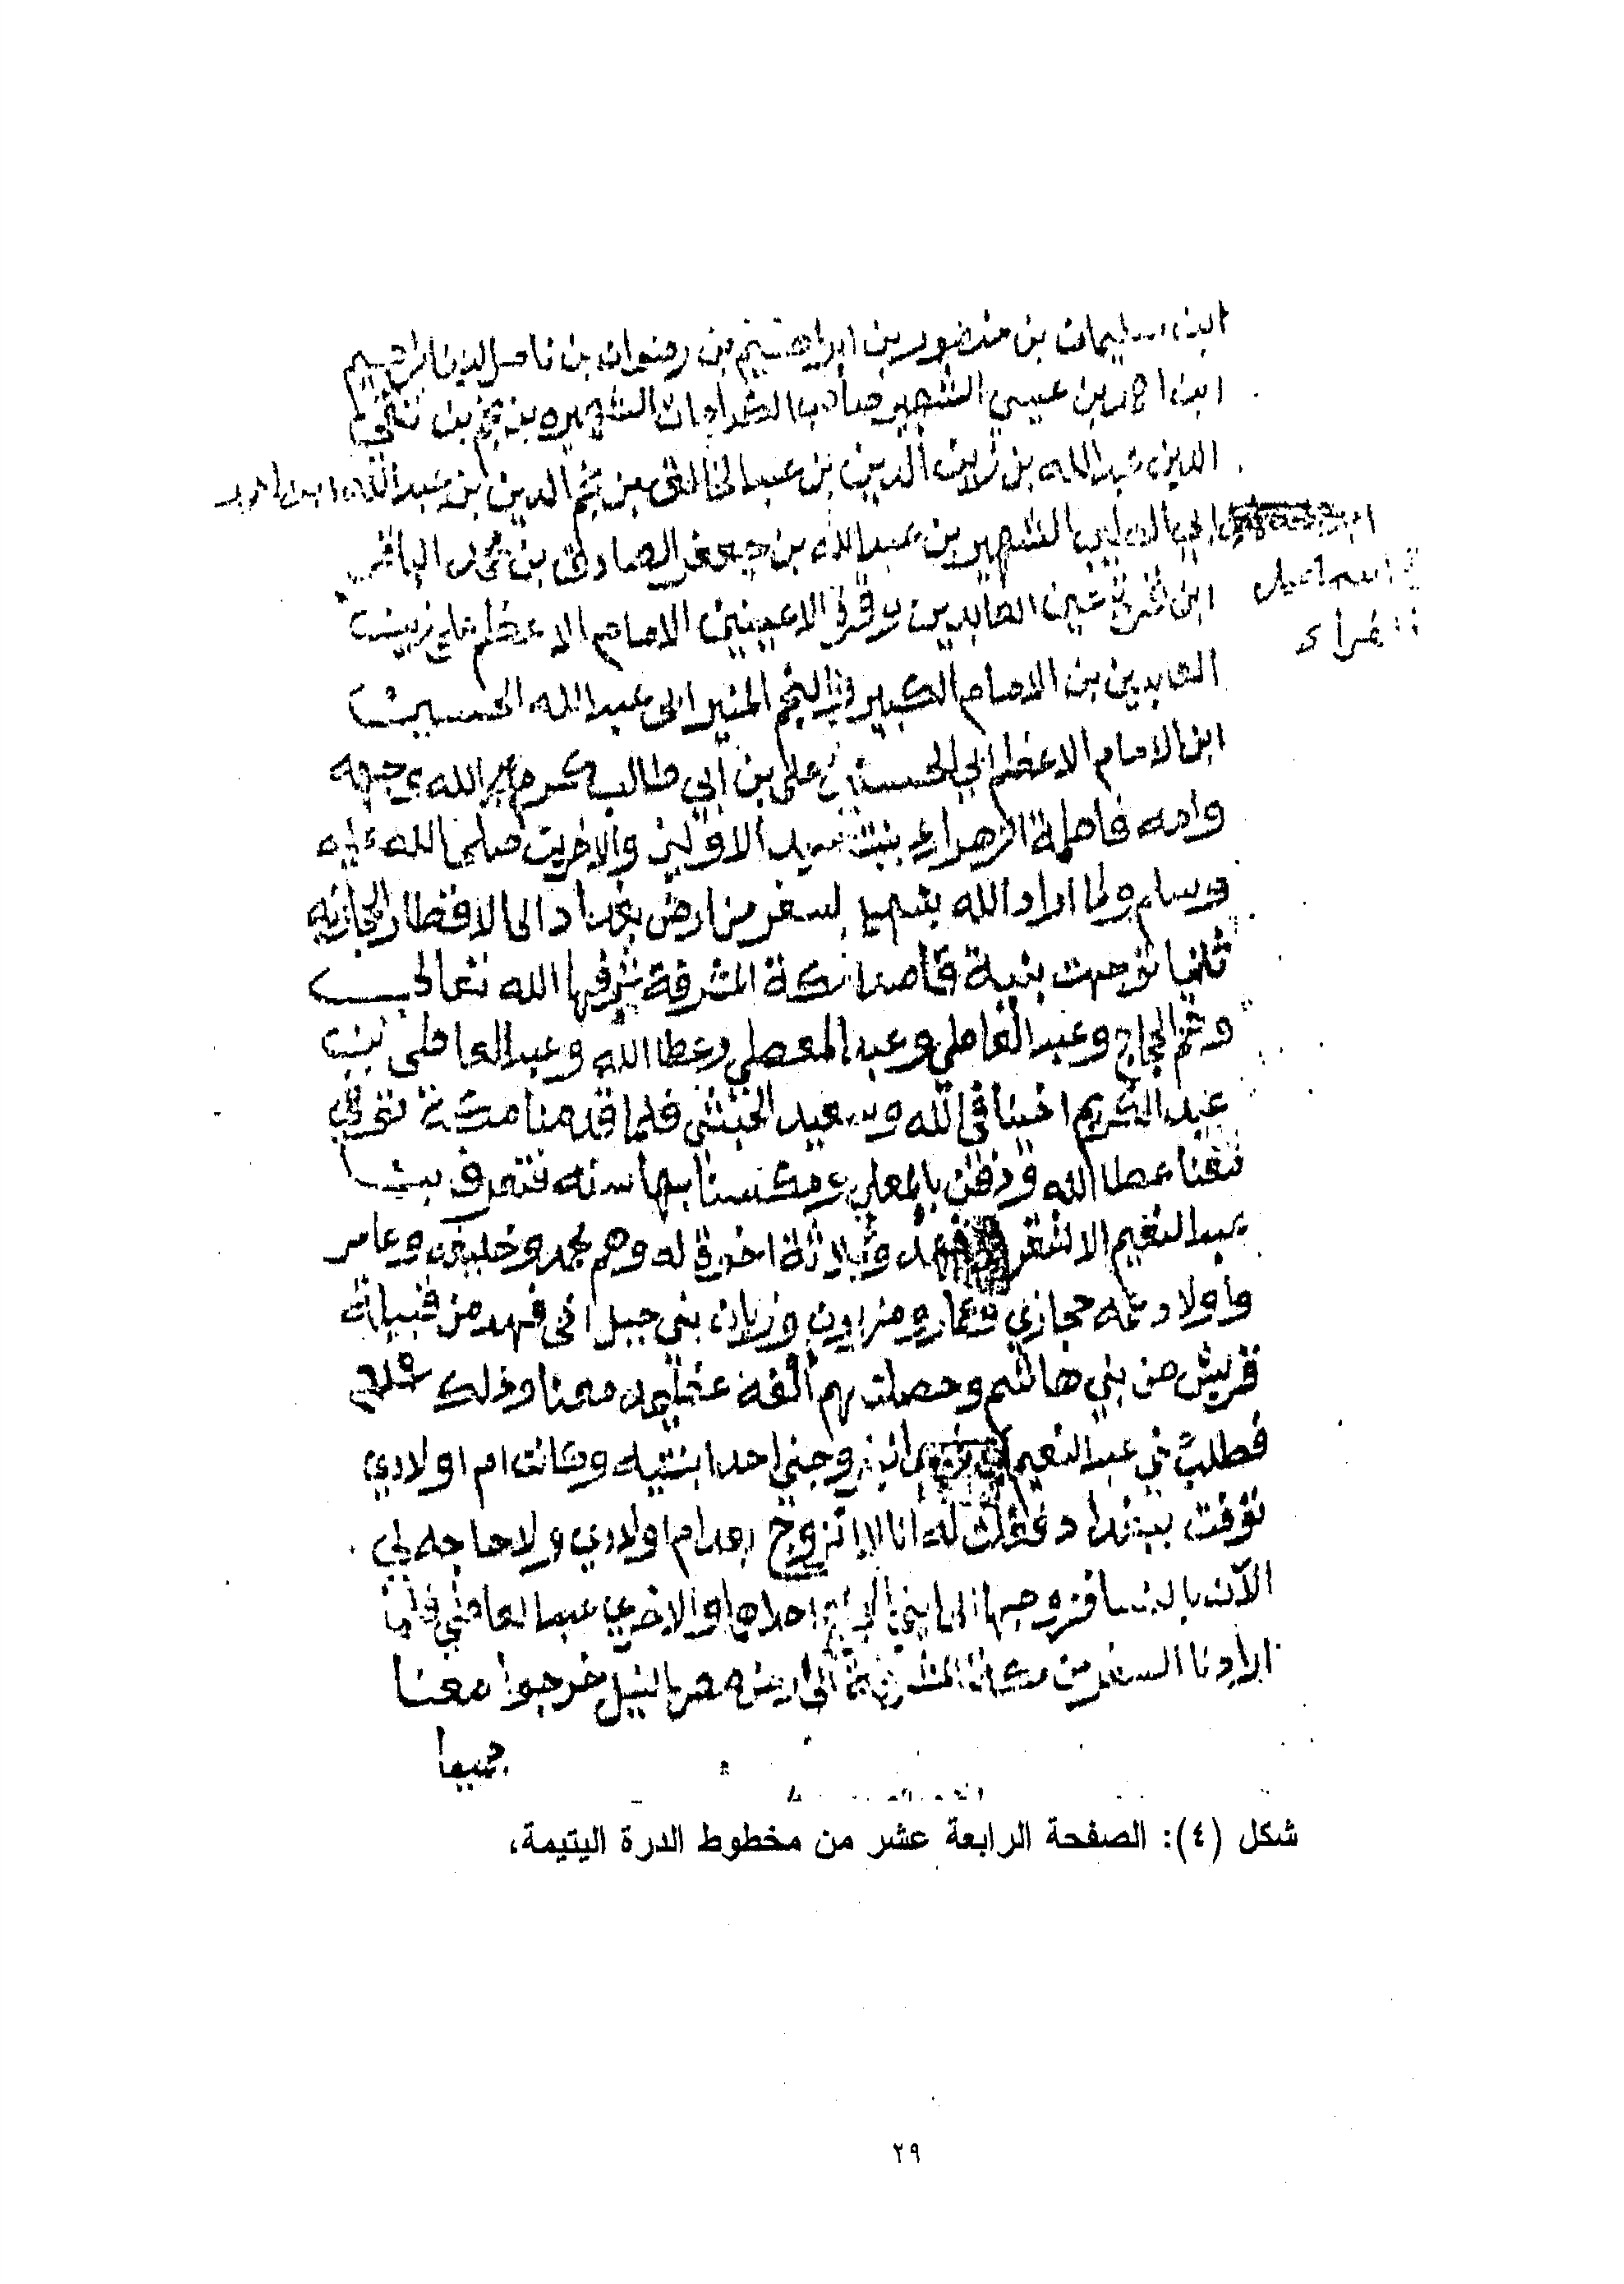 ابن سليمان بن منصور بن ابراهيم بن رضوان بن ناصر الدين ابراهيم
ابن احمد بن عيسى الشهير صاحب الكرامات الشهيره بن نجم بن تقي
الدين عبدالله بن زين الدين بن عبدالخالق بن نجم الدين بن عبدالله ابن احمد
ابي الطيب الشهير بن عبدالله بن جعفر الصادق بن محمد الباقر
اسماعيل
ابن قرة عين العابدين وقرة الاعينين الامام الاعظم علي زين
العابدين بن الامام الكبير والنجم المنير ابى عبدالله الحسين
ابن الامام الاعظم ابي الحسن علي بن ابي طالب كرم الله وجهه
وامه فاطمة الزهراء بنت سيد الاولين والاخرين صلى الله عليه
وسلم ولما اراد الله بسفر من ارض بغداد الى الاقطار الحجازيه
ثلنيا توجهت بنية قاصدا مكة المشرفة شرفها الله تعالى
وخم الحجاج وعبد العاطي وعبد المعطي وعطا الله وعبد العاطى بن
عبد الكريم اخينا فى الله وسعيد الحبشى فلما قدمنا مكة توفي
معنا عطا الله ودفن بالمعلى ومكسنا بها سنه فتعرف بنا
عبد النعيم الاشقر فهد وثلاثة اخوة له وهم محمد وخليفه وعامر
واولاد عمه حجازي وعمار ومزيون وزيان بني جبل اخى فهد من قبيلة
قريش من بني هاشم وحصلت لهم الفه عظيمه معنا وذلك
فطلب مني عبد النعيم ان يزوجني احدا بنتيه وكانت ام اولادي
توفت ببغداد فقلت له انا لا اتزوج بعد ام اولادي ولا حاجه لي
الآن بالنسا فزوجها الى ابني احداها والاخري عبد العاطي فلما
اردنا السفر من مكة المشرفة الى ارض مصر بالنيل خرجوا معنا
جميعا
شكل (٤): الصفحة الرابعة عشر من مخطوط الدرة اليتيمة،
٢٩